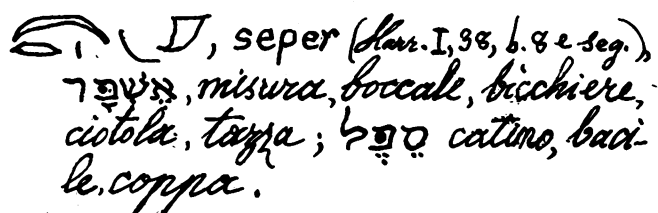 , seper (Harr. I, 38, b. 8 e seg.),
אֵשְׁפָּר, misura, boccale, bicchiere,
ciotola, tazza; סֵפֶל catino, baci-
le, coppa.